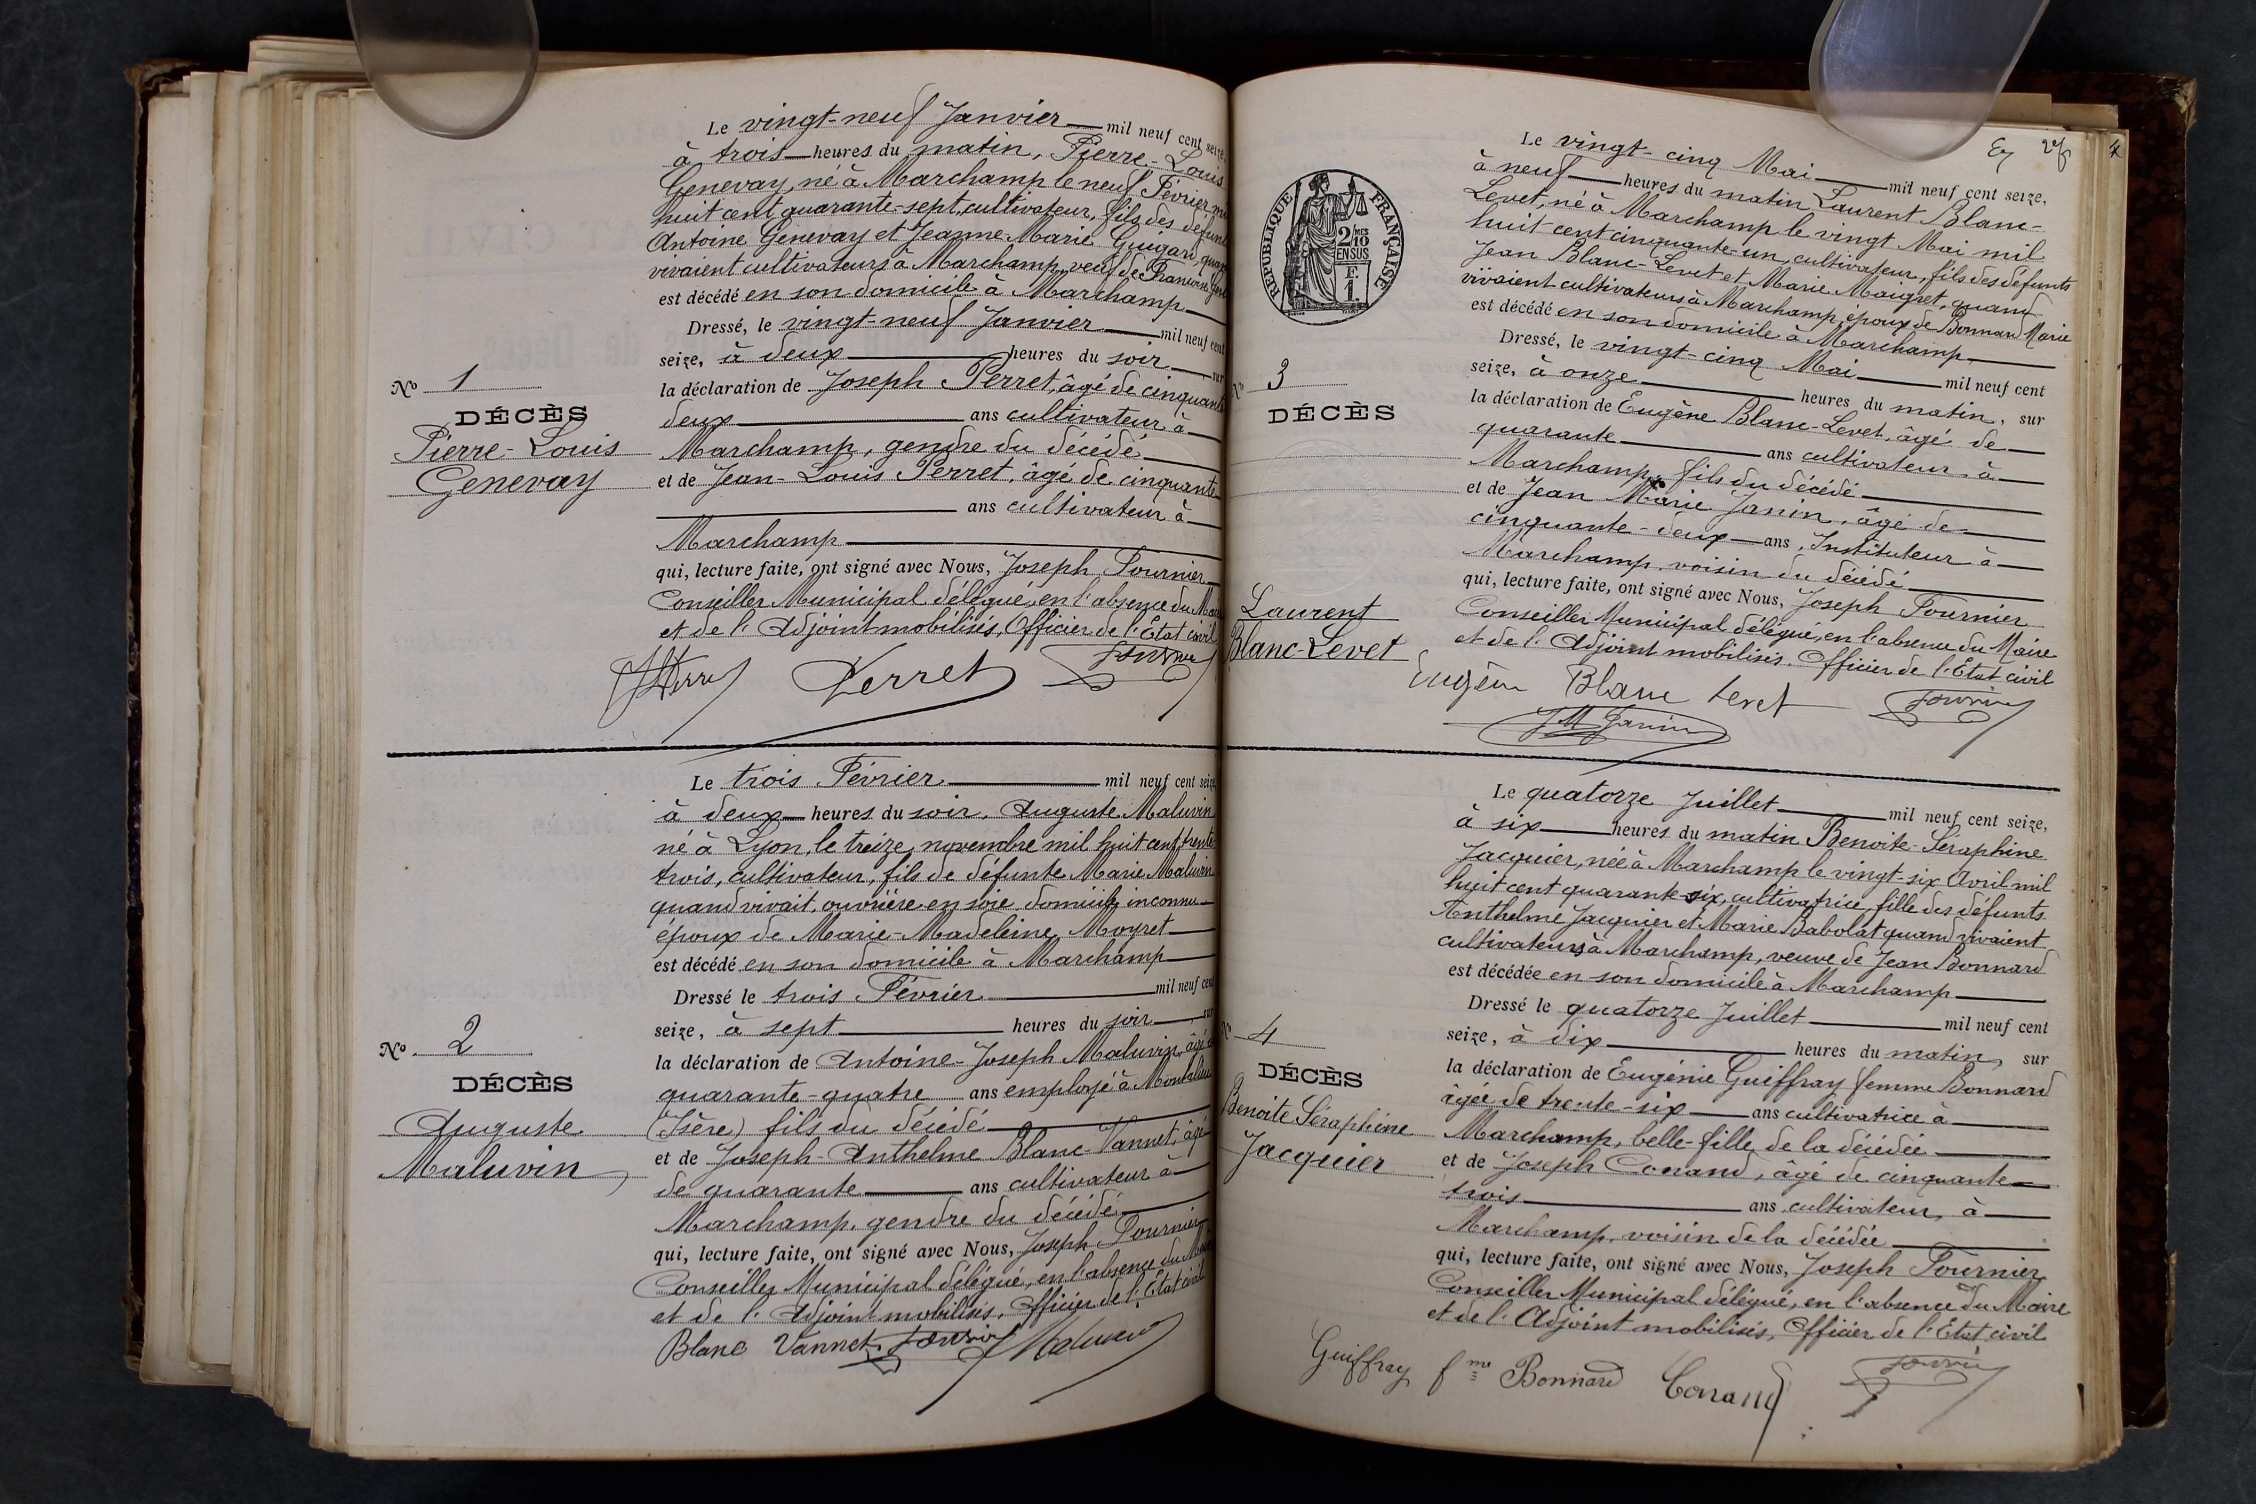 Le vingt-neuf Janvier mil neuf cent seize,
à trois heures du matin, Pierre-Louis
Genevay, né à Marchamp le neuf Février
huit cent quarante-sept, cultivateur, fils des défunts
Antoine Genevay et Jeanne Marie Guigard, quand
vivaient cultivateurs à Marchamp, veuf de Francoise
est décédé en son domicile à Marchamp
Dressé, le vingt-neuf Janvier mil neuf cent
seize, à deux heures du soir sur
la déclaration de Joseph Perret, âgé de cinquante
deux ans cultivateur à
Marchamp, gendre du décédé
et de Jean-Louis Perret, âgé de cinquante
ans cultivateur à
Marchamp
qui, lecture faite, ont signé avec Nous, Joseph Fournier
Conseiller Municipal délégué, en l'absence du Maire
et de l'Adjoint mobilisés, Officier de l'Etat civil
Perret
No 1
DÉCÈS
Pierre-Louis
Genevay
Le trois Février mil neuf cent seize
à deux heures du soir, Auguste Maluvin
né à Lyon, le treize novembre mil huit cent trente
trois, cultivateur, fils de défunte Marie Maluvin
quand vivait, ouvrière en soie, domicile inconnu
époux de Marie-Madeleine Moyret
est décédé en son domicile à Marchamp
Dressé le trois Février mil neuf cent
seize, à sept heures du soir, sur
la déclaration de Antoine-Joseph Maluvin, âgé de
quarante-quatre ans employé à Montalieu
(Isère) fils du décédé
et de Joseph-Anthelme Blanc-Vannet, âgé
de quarante ans cultivateur à
Marchamp, gendre du décédé
qui, lecture faite, ont signé avec Nous, Joseph Fournier
Conseiller Municipal délégué, en l'absence du Maire
et de l'Adjoint mobilisés, Officier de l'Etat civil
Blanc Vannet Maluvin
No 2
DÉCÈS
Auguste
Maluvin
27
RÉPUBLIQUE FRANÇAISE
2/10 MES
EN SUS
F
1.
Le vingt-cinq Mai mil neuf cent seize,
à neuf heures du matin Laurent Blanc-
Levet, né à Marchamp le vingt Mai mil
huit cent cinquante-un, cultivateur, fils des défunts
Jean Blanc-Levet et Marie Maigret, quand
vivaient cultivateurs à Marchamp, époux de Bonnard Marie
est décédé en son domicile à Marchamp
Dressé, le vingt-cinq Mai mil neuf cent
seize, à onze heures du matin, sur
la déclaration de Eugène Blanc-Levet, âgé de
quarante ans cultivateur à
Marchamp, fils du décédé
et de Jean Marie Janin, âgé de
cinquante-deux ans, Instituteur à
Marchamp, voisin du décédé
qui, lecture faite, ont signé avec Nous, Joseph Fournier
Conseiller Municipal délégué, en l'absence du Maire
et de l'Adjoint mobilisés, Officier de l'Etat civil
Eugène Blanc Levet
JM Janin
No 3
DÉCÈS
Laurent
Blanc-Levet
Le quatorze Juillet mil neuf cent seize,
à six heures du matin Benoite-Séraphine
Jacquier, née à Marchamp le vingt-six Avril mil
huit cent quarante-six, cultivatrice, fille des défunts
Anthelme Jacquier et Marie Babolat quand vivaient
cultivateurs à Marchamp, veuve de Jean Bonnard
est décédée en son domicile à Marchamp
Dressé le quatorze Juillet mil neuf cent
seize, à dix heures du matin, sur
la déclaration de Eugénie Guiffray femme Bonnard
âgée de trente-six ans cultivatrice à
Marchamp, belle-fille de la décédée
et de Joseph Conand, âgé de cinquante
trois ans cultivateur, à
Marchamp, voisin de la décédée
qui, lecture faite, ont signé avec Nous, Joseph Fournier
Conseiller Municipal délégué, en l'absence du Maire
et de l'Adjoint mobilisés, Officier de l'Etat civil
Guiffray fme Bonnard Conand
No 4
DÉCÈS
Benoite Séraphine
Jacquier